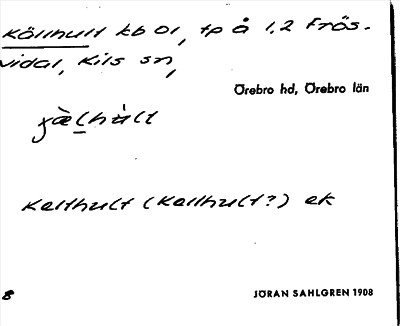 Källhult kb 01, tp å 1,2 Frös-
vidal, Kils sn,
Örebro hd, Örebro län
kelthult (kellhult?) ek
8
JÖRAN SAHLGREN 1908